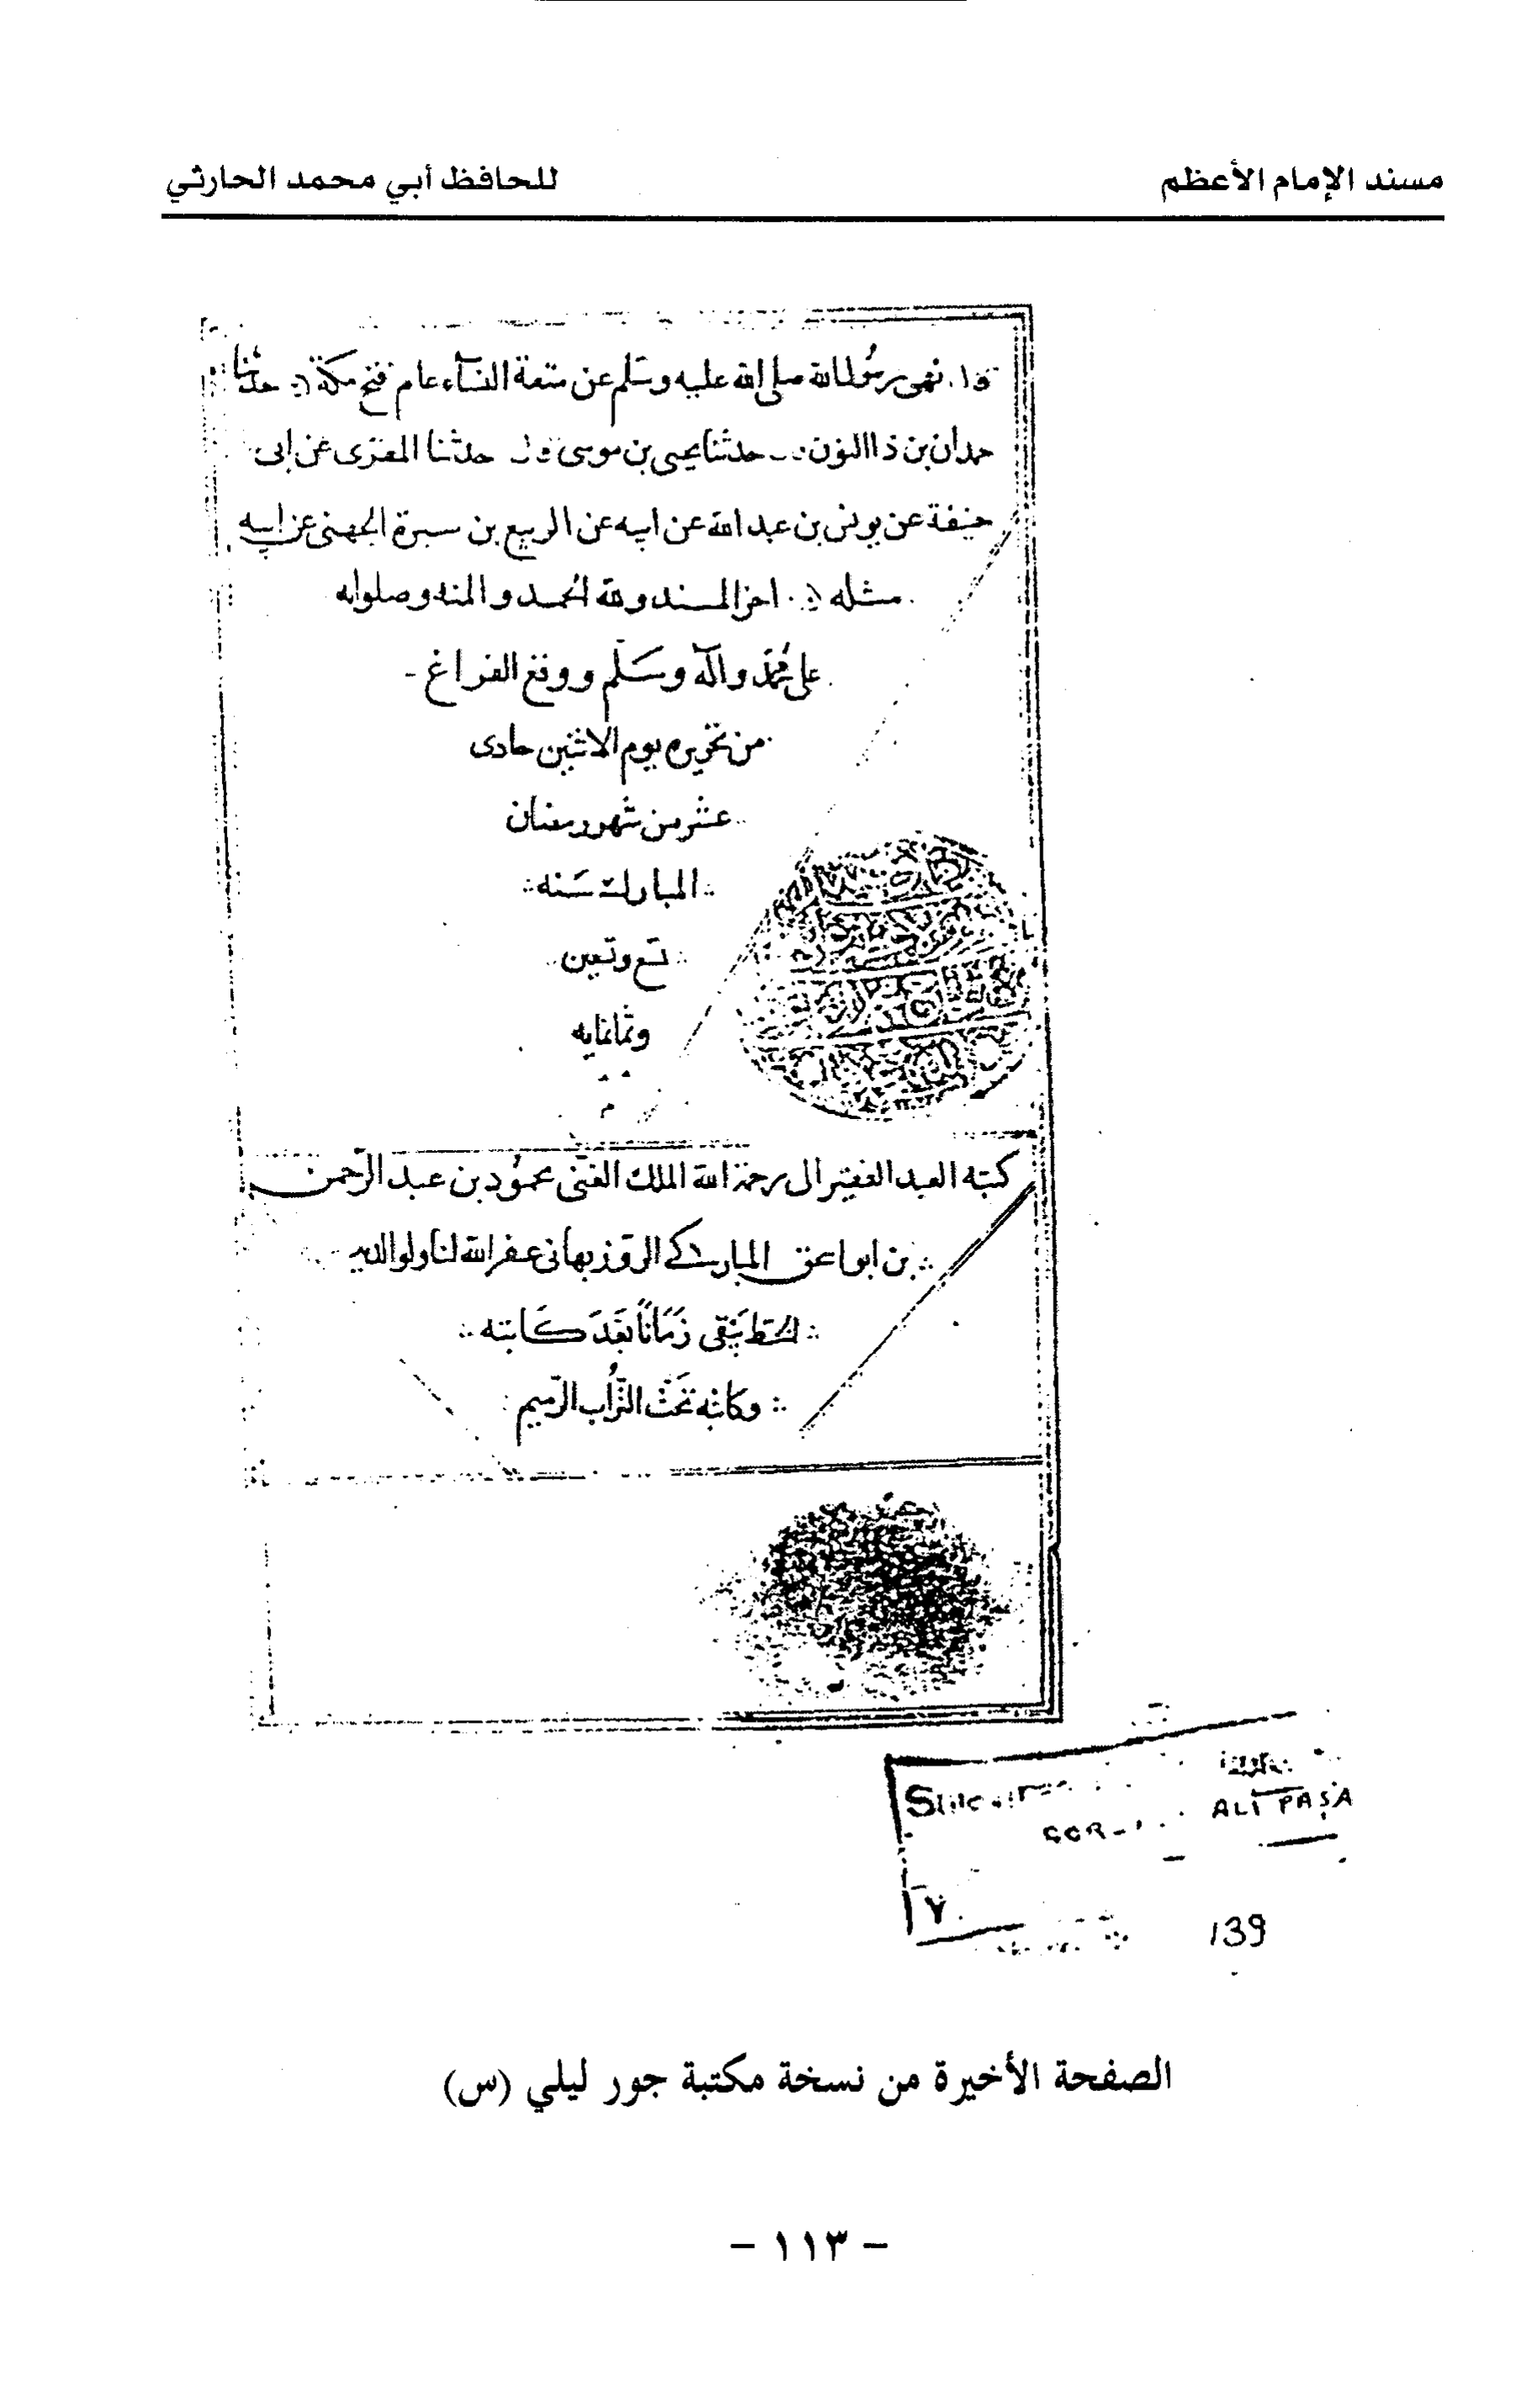 مسند الإمام الأعظم
للحافظ أبي محمد الحارثي
قال نهى رسول الله صلى الله عليه وسلم عن متعة النسآء عام فتح مكة حدثنا
حمدان بن ذاالنون حدثنا يحيى بن موسى قال حدثنا المقرى عن ابى
حنيفة عن يونس بن عبد الله عن ابيه عن الربيع بن سبرة الجهنى عن ابيه
مثله اخر المسند ولله الحمد والمنه وصلواته
على محمد وآله وسلم ووقع الفراغ
من تحريره يوم الاثنين حادى
عشر من شهر رمضان
المبارك سنه
تسع وتسعين
وثمانمايه
كتبه العبد الفقير الى رحمة الله الملك الغنى محمود بن عبد الرحمن
بن المباركى الروزبهانى غفر الله لنا ولوالديه
الخط يبقى زمانا بعد كاتبه
وكاتبه تحت التراب الرميم
ALİ PAŞA
ÇOR
١٧
139
الصفحة الأخيرة من نسخة مكتبة جور ليلي (س)
- ١١٣ -